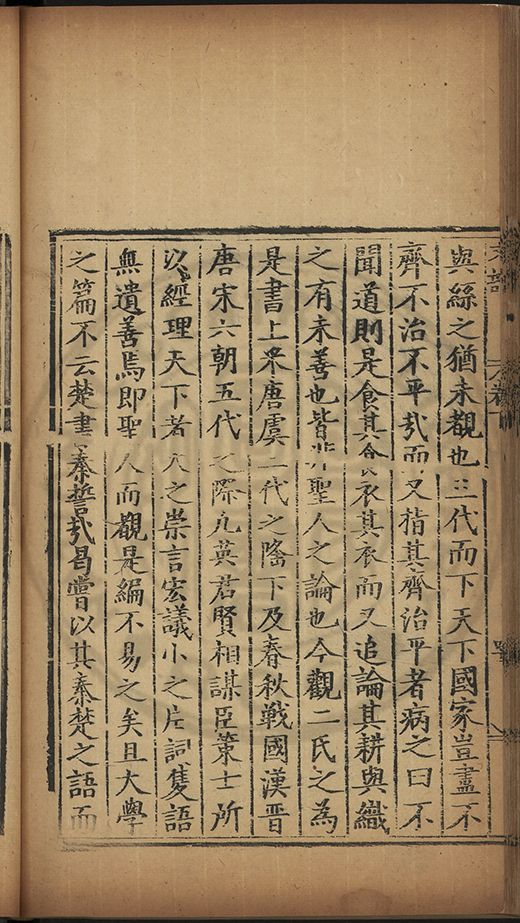 與絲之猶未觀也三代而下天下國家豈盡不
齊不治不平㢤而又指其齊治平者病之曰不
聞道則是食其食衣其衣而又追論其耕與織
之有未善也皆非聖人之論也今觀二氏之為
是書上罙唐虞二代之隆下及春秋戰國漢晋
唐宋六朝五代之際凡英君賢相謀臣策士所
以經理天下者大之崇言宏議小之片詞隻語
無遺善焉即聖人而觀是編不易之矣且大學
之篇不云楚書秦誓㢤曷嘗以其秦楚之語而